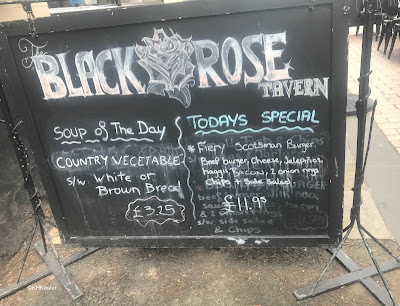 The
BLACK ROSE
TAVERN
Soup of The Day
COUNTRY VEGETABLE
s/w White or
Brown Bread
£3.25
TODAYS SPECIAL
* Fiery Scotsman Burger
Beef burger, Cheese, Jalepños
haggis, Bacon, 2 onion rings
Chips + Side Salad
£11.95
s/w side salad
& Chips
©KHKeeler